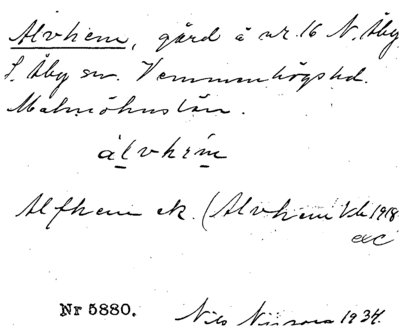 Alvhem, gård å nr. 16 N. Åby
S. Åby sn. Vemmenhögs hd.
Malmöhus län.
álvhém
Alfhem ek. (Alvhem 1918
etc
Nr 5880. Nils Nilsson 1934.